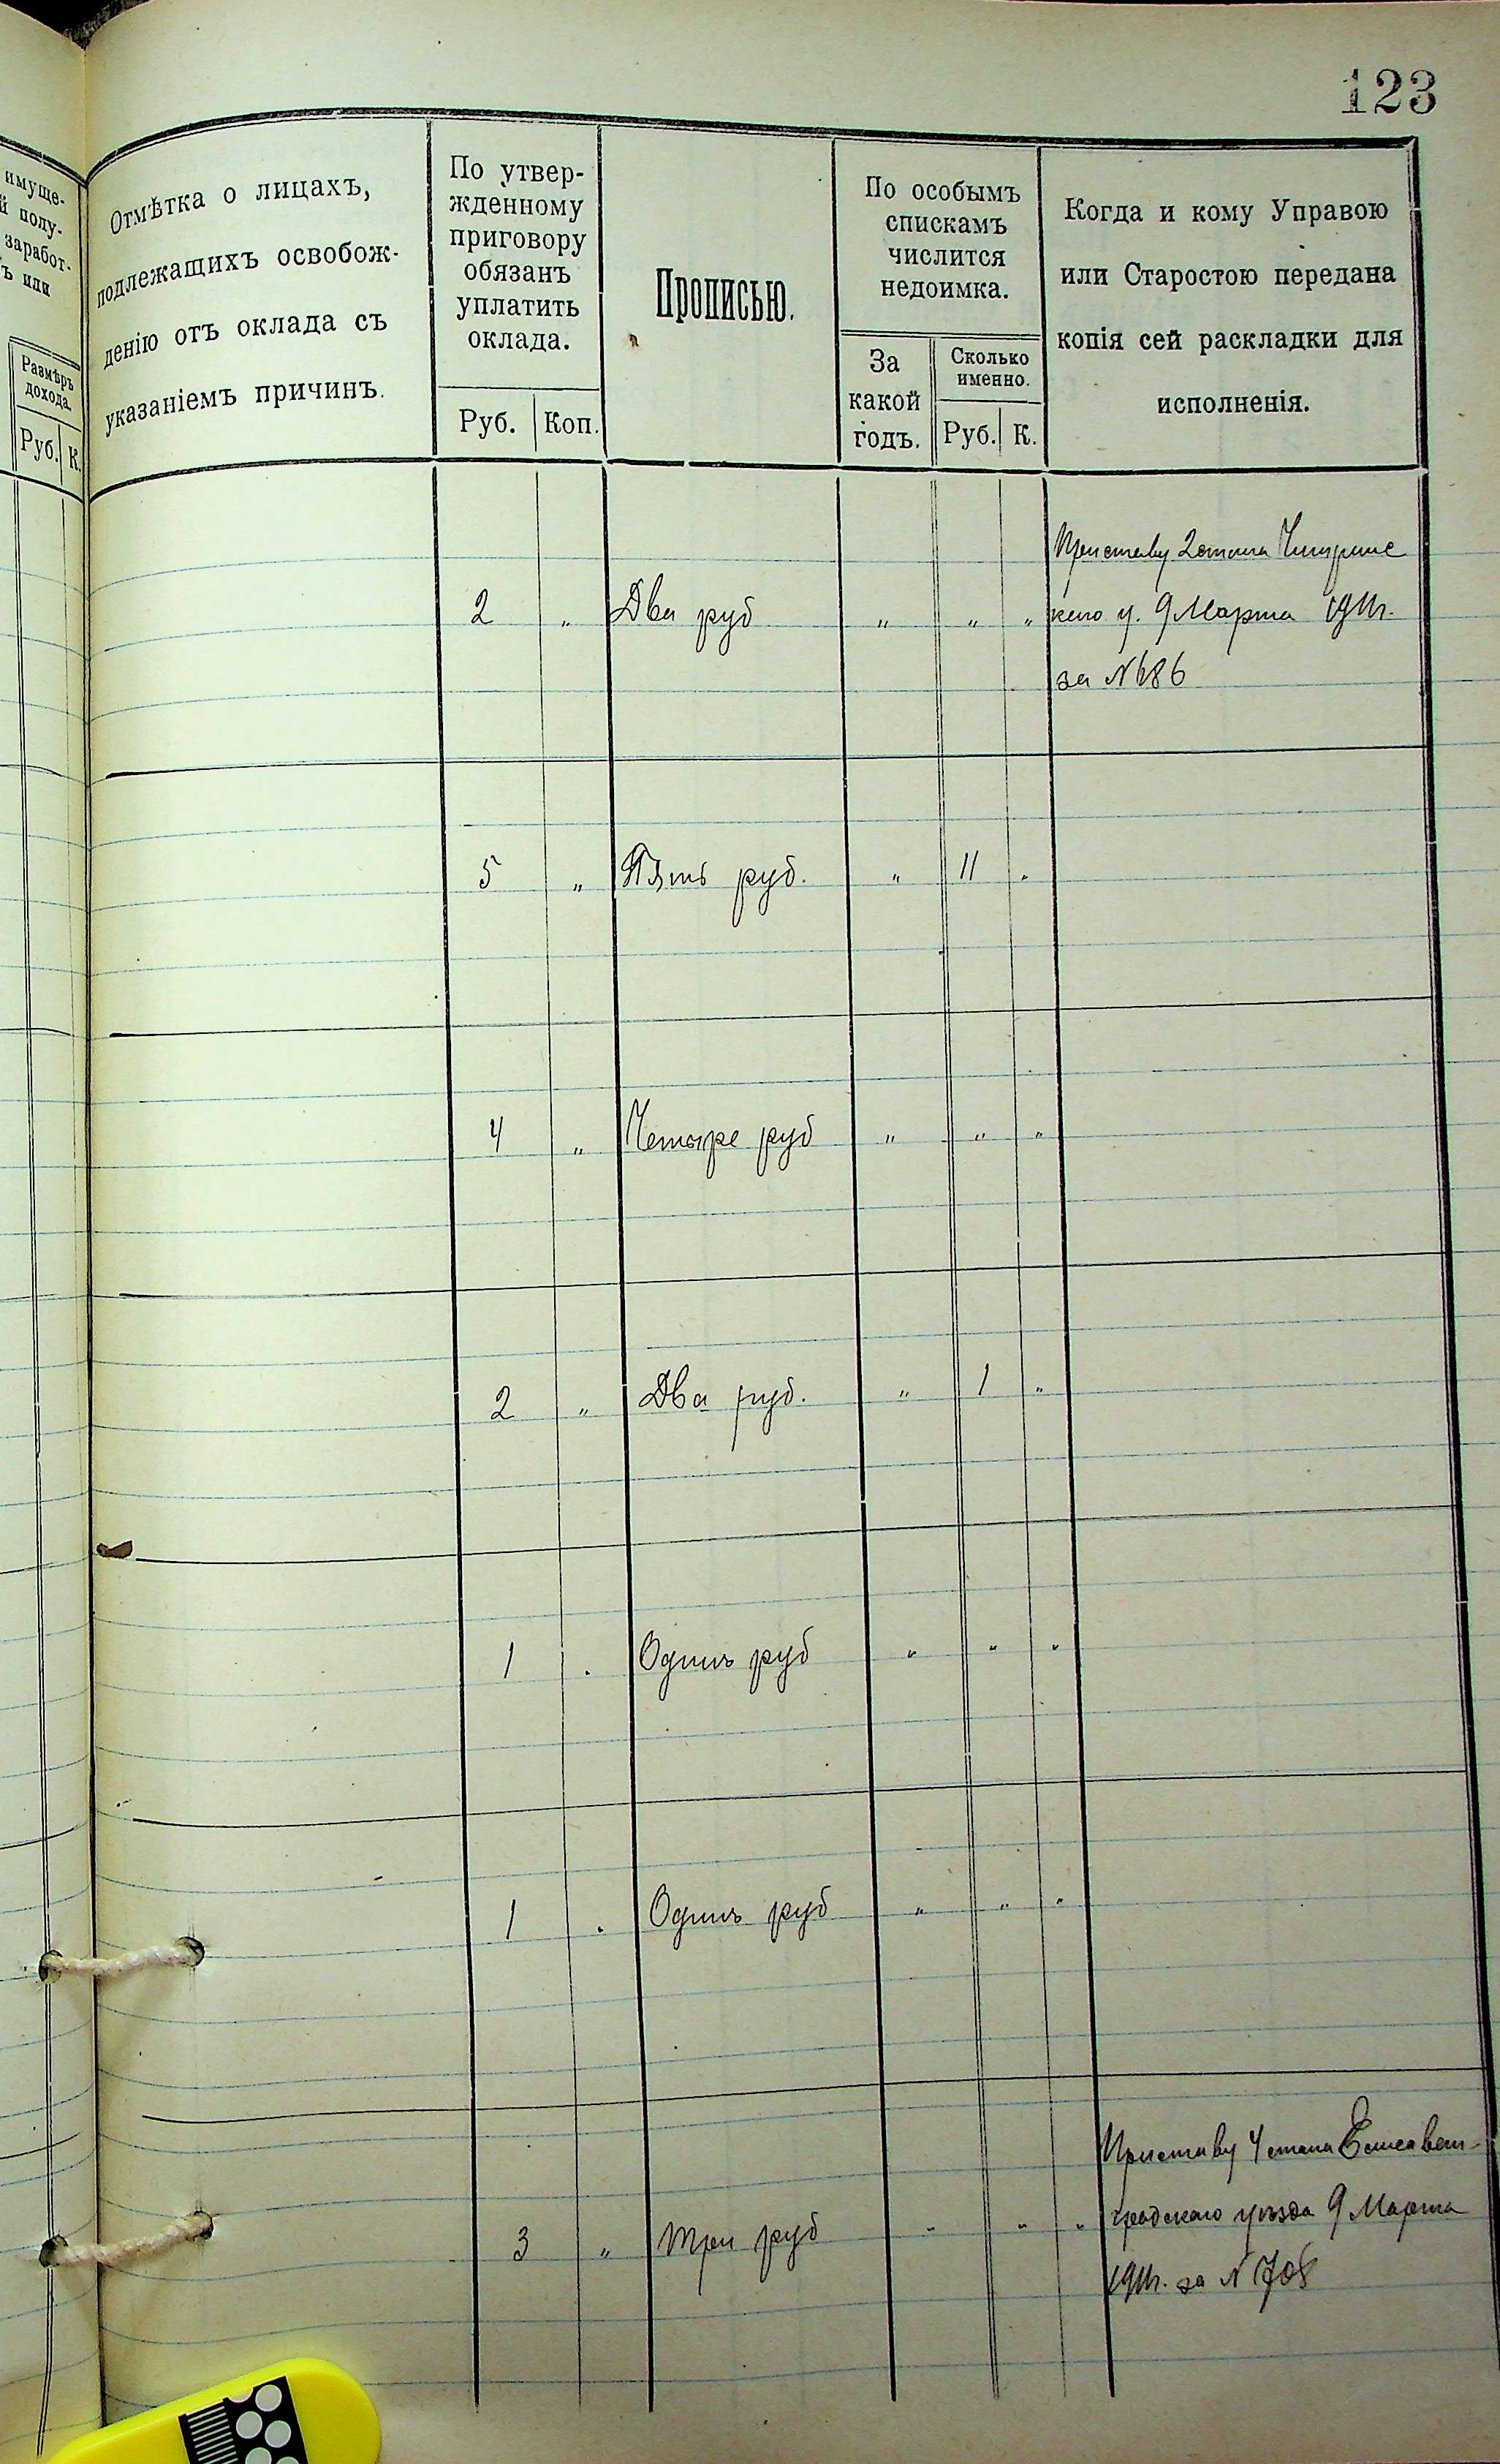 123
имуще-
й полу-
заработ-
ъ или
Размѣръ
дохода.
Руб. К.
Отмѣтка о лицахъ,
подлежащихъ освобож-
денію отъ оклада съ
указаніемъ причинъ.
По утвер-
жденному
приговору
обязанъ
уплатить
оклада.
Руб. Коп.
Прописью.
По особымъ
спискамъ
числится
недоимка.
За
какой
годъ.
Сколько
именно.
Руб. К.
Когда и кому Управою
или Старостою передана
копія сей раскладки для
исполненія.
Приставу 2 стана Чигринс
2 „ Два руб „ „ „ каго у. 9 Марта 1911г.
за №686
5 „ Пять руб. „ 11 „
4 „ Четыре руб „ „ „
2 „ Два руб. „ 1 „
1 „ Одинъ руб „ „ „
1 „ Одинъ руб „ „ „
Приставу 4 стана Елисавет-
3 „ Три руб „ „ „ градскаго уѣзда 9 Марта
1911г. за № 708